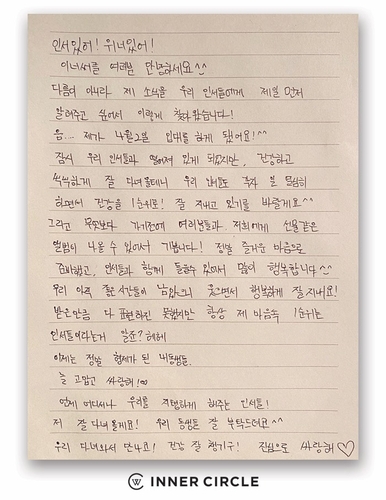 인서있어! 위너있어!
이너써클 여러분 안녕하세요^^
다름이 아니라 제 소식을 우리 인서들에게 제일 먼저
알려주고 싶어서 이렇게 찾아왔습니다!
음... 제가 4월2일 입대를 하게 됐어요!^^
잠시 우리 인서들과 떨어져 있게 되었지만, 건강하고
씩씩하게 잘 다녀올테니 우리 인서들도 투자 일 열심히
하면서 건강을 1순위로! 잘 지내고 있기를 바랄게요^^
그리고 무엇보다 가기전에 여러분들과 저희에게 선물같은
앨범이 나올 수 있어서 기쁩니다! 정말 즐거운 마음으로
준비했고, 인서들과 함께 들을수 있어서 많이 행복합니다^^
우리 아직 좋은시간들이 남았으니 웃으면서 행복하게 잘 지내요!
받은만큼 다 표현하진 못했지만 항상 제 마음속 1순위는
인서들이라는거 알죠? 헤헤
이제는 정말 형제가 된 내동생들.
늘 고맙고 싸랑해!∞
언제 어디서나 우리를 지탱하게 해주는 인서들!
저 잘 다녀올게요! 우리 동생들 잘 부탁드려요^^
우리 다녀와서 만나요! 건강 잘 챙기구! 진심으로 싸랑해♡
INNER CIRCLE